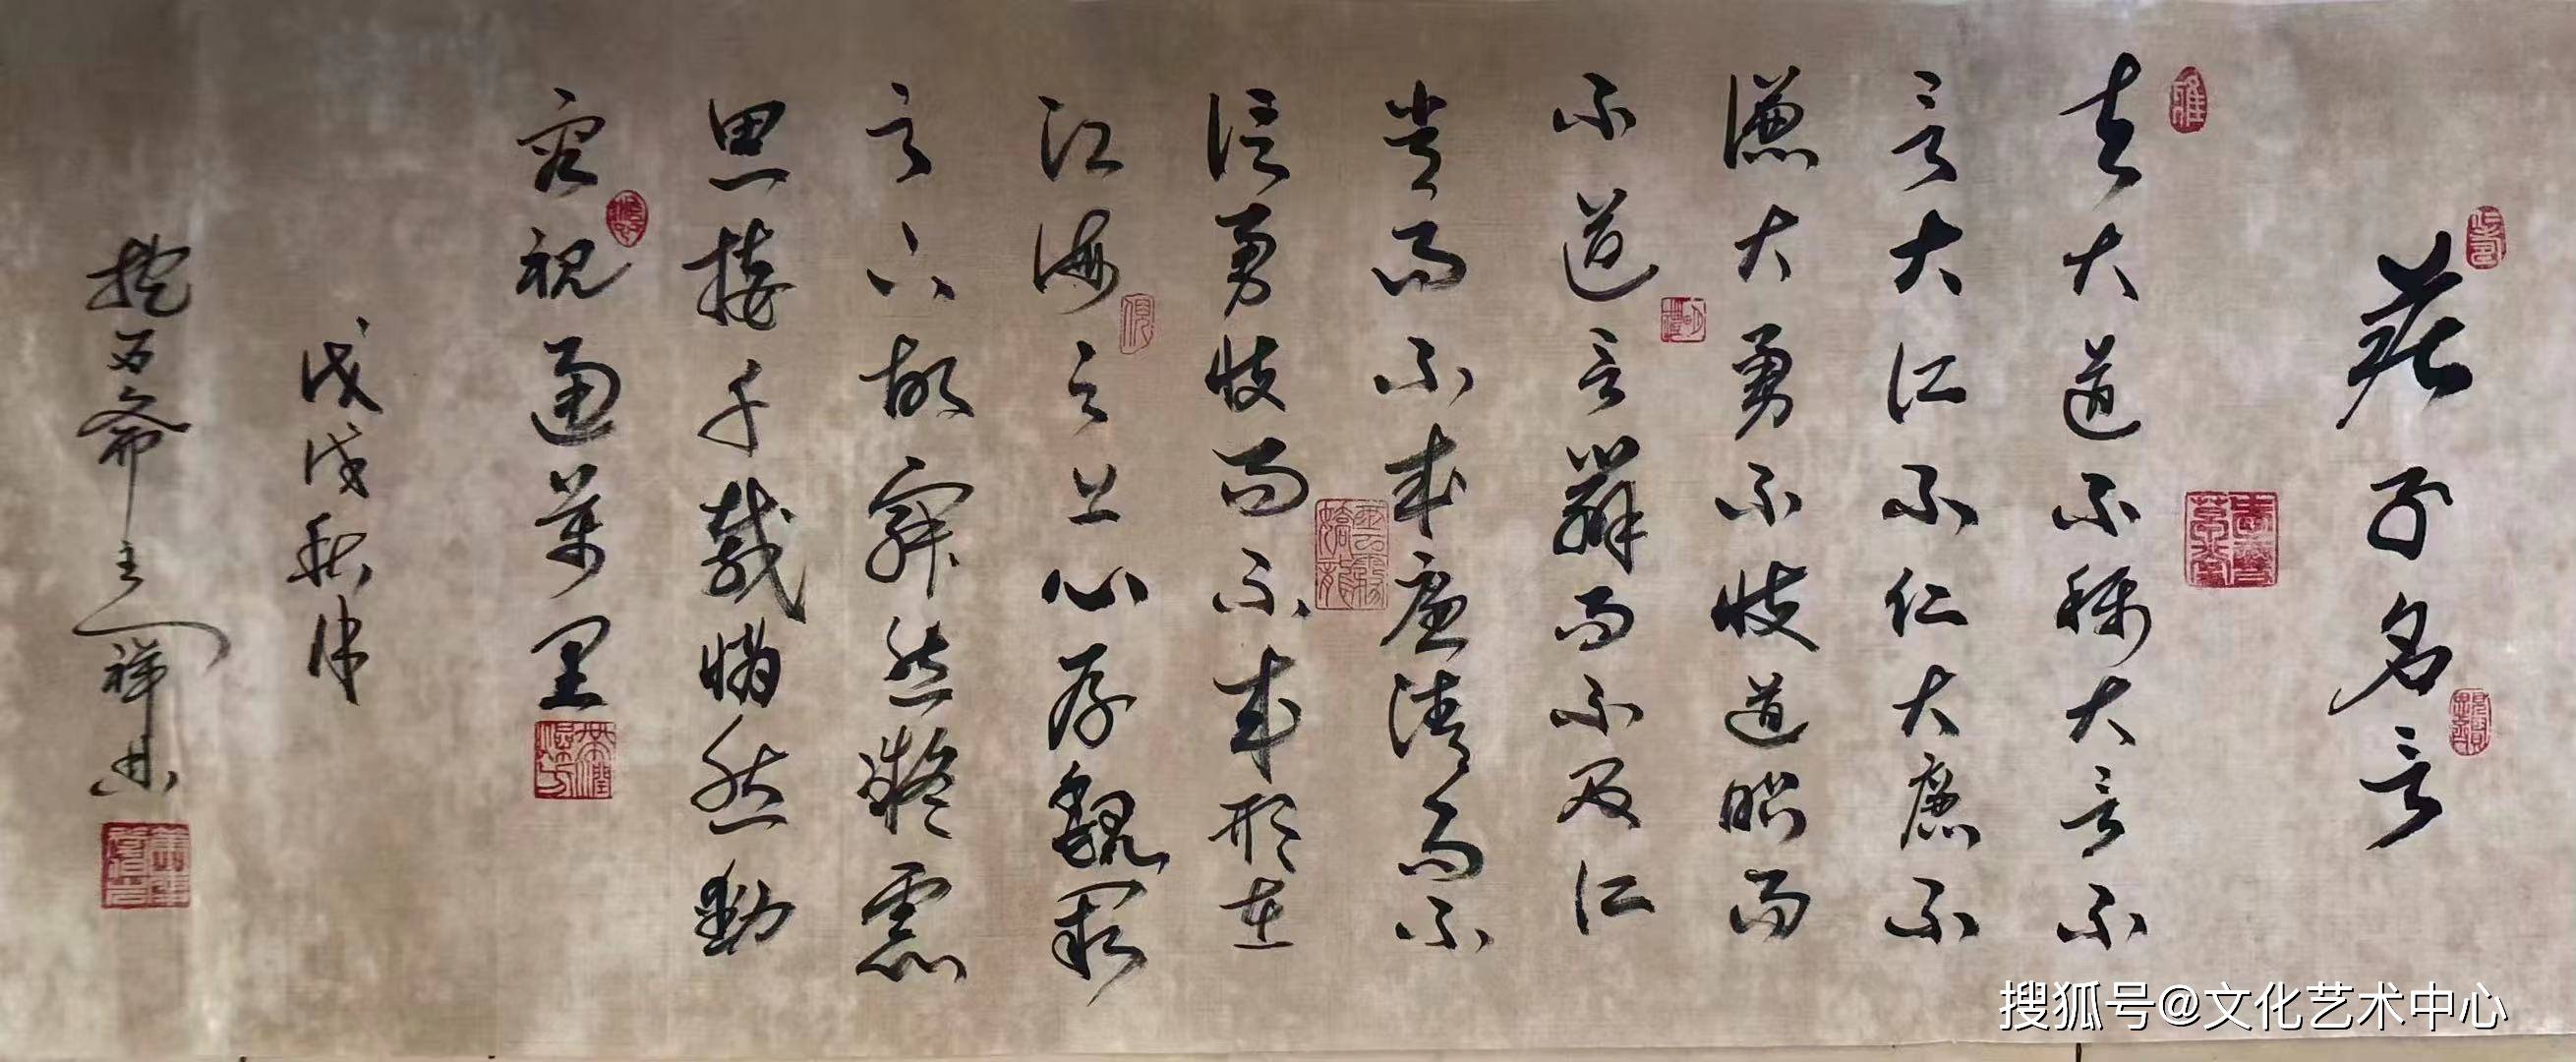 莊子名言
夫大道不稱大言不
言大仁不仁大廉不
謙大勇不忮道昭而
不道言辯而不及仁
常而不成廉清而不
信勇忮而不成形在
江海之上心存魏闕
之下故寂然凝慮
思接千載悄然動
容視通萬里
戊戌秋月
抱石齋主人祥其
搜狐号@文化艺术中心